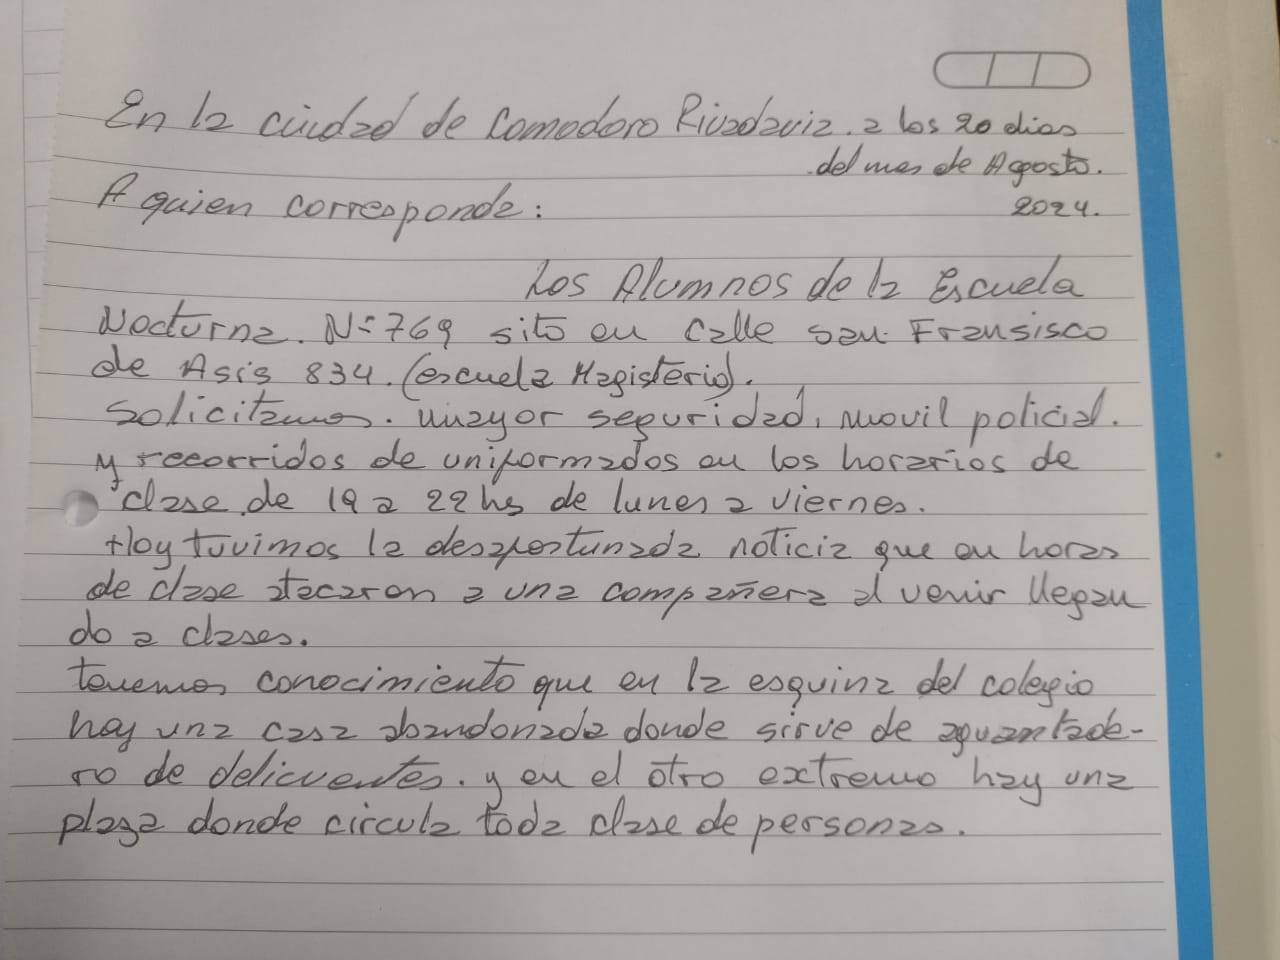 En la ciudad de Comodoro Rivadavia. a los 20 dias
del mes de Agosto.
2024.
A quien corresponde:
Los Alumnos de la Escuela
Nocturna. N=769 sito en Calle san Fransisco
de Asis 834. (escuela Magisterio).
Solicitamos. mayor seguridad, movil policial.
y recorridos de uniformados en los horarios de
clase de 19 a 22 hs de lunes a viernes.
Hoy tuvimos la desafortunada noticia que en horas
de clase atacaron a una compañera al venir llegan
do a clases.
tenemos conocimiento que en la esquina del colegio
hay una casa abandonada donde sirve de aguantade-
ro de delicuentes. y en el otro extremo hay una
plaza donde circula toda clase de personas.